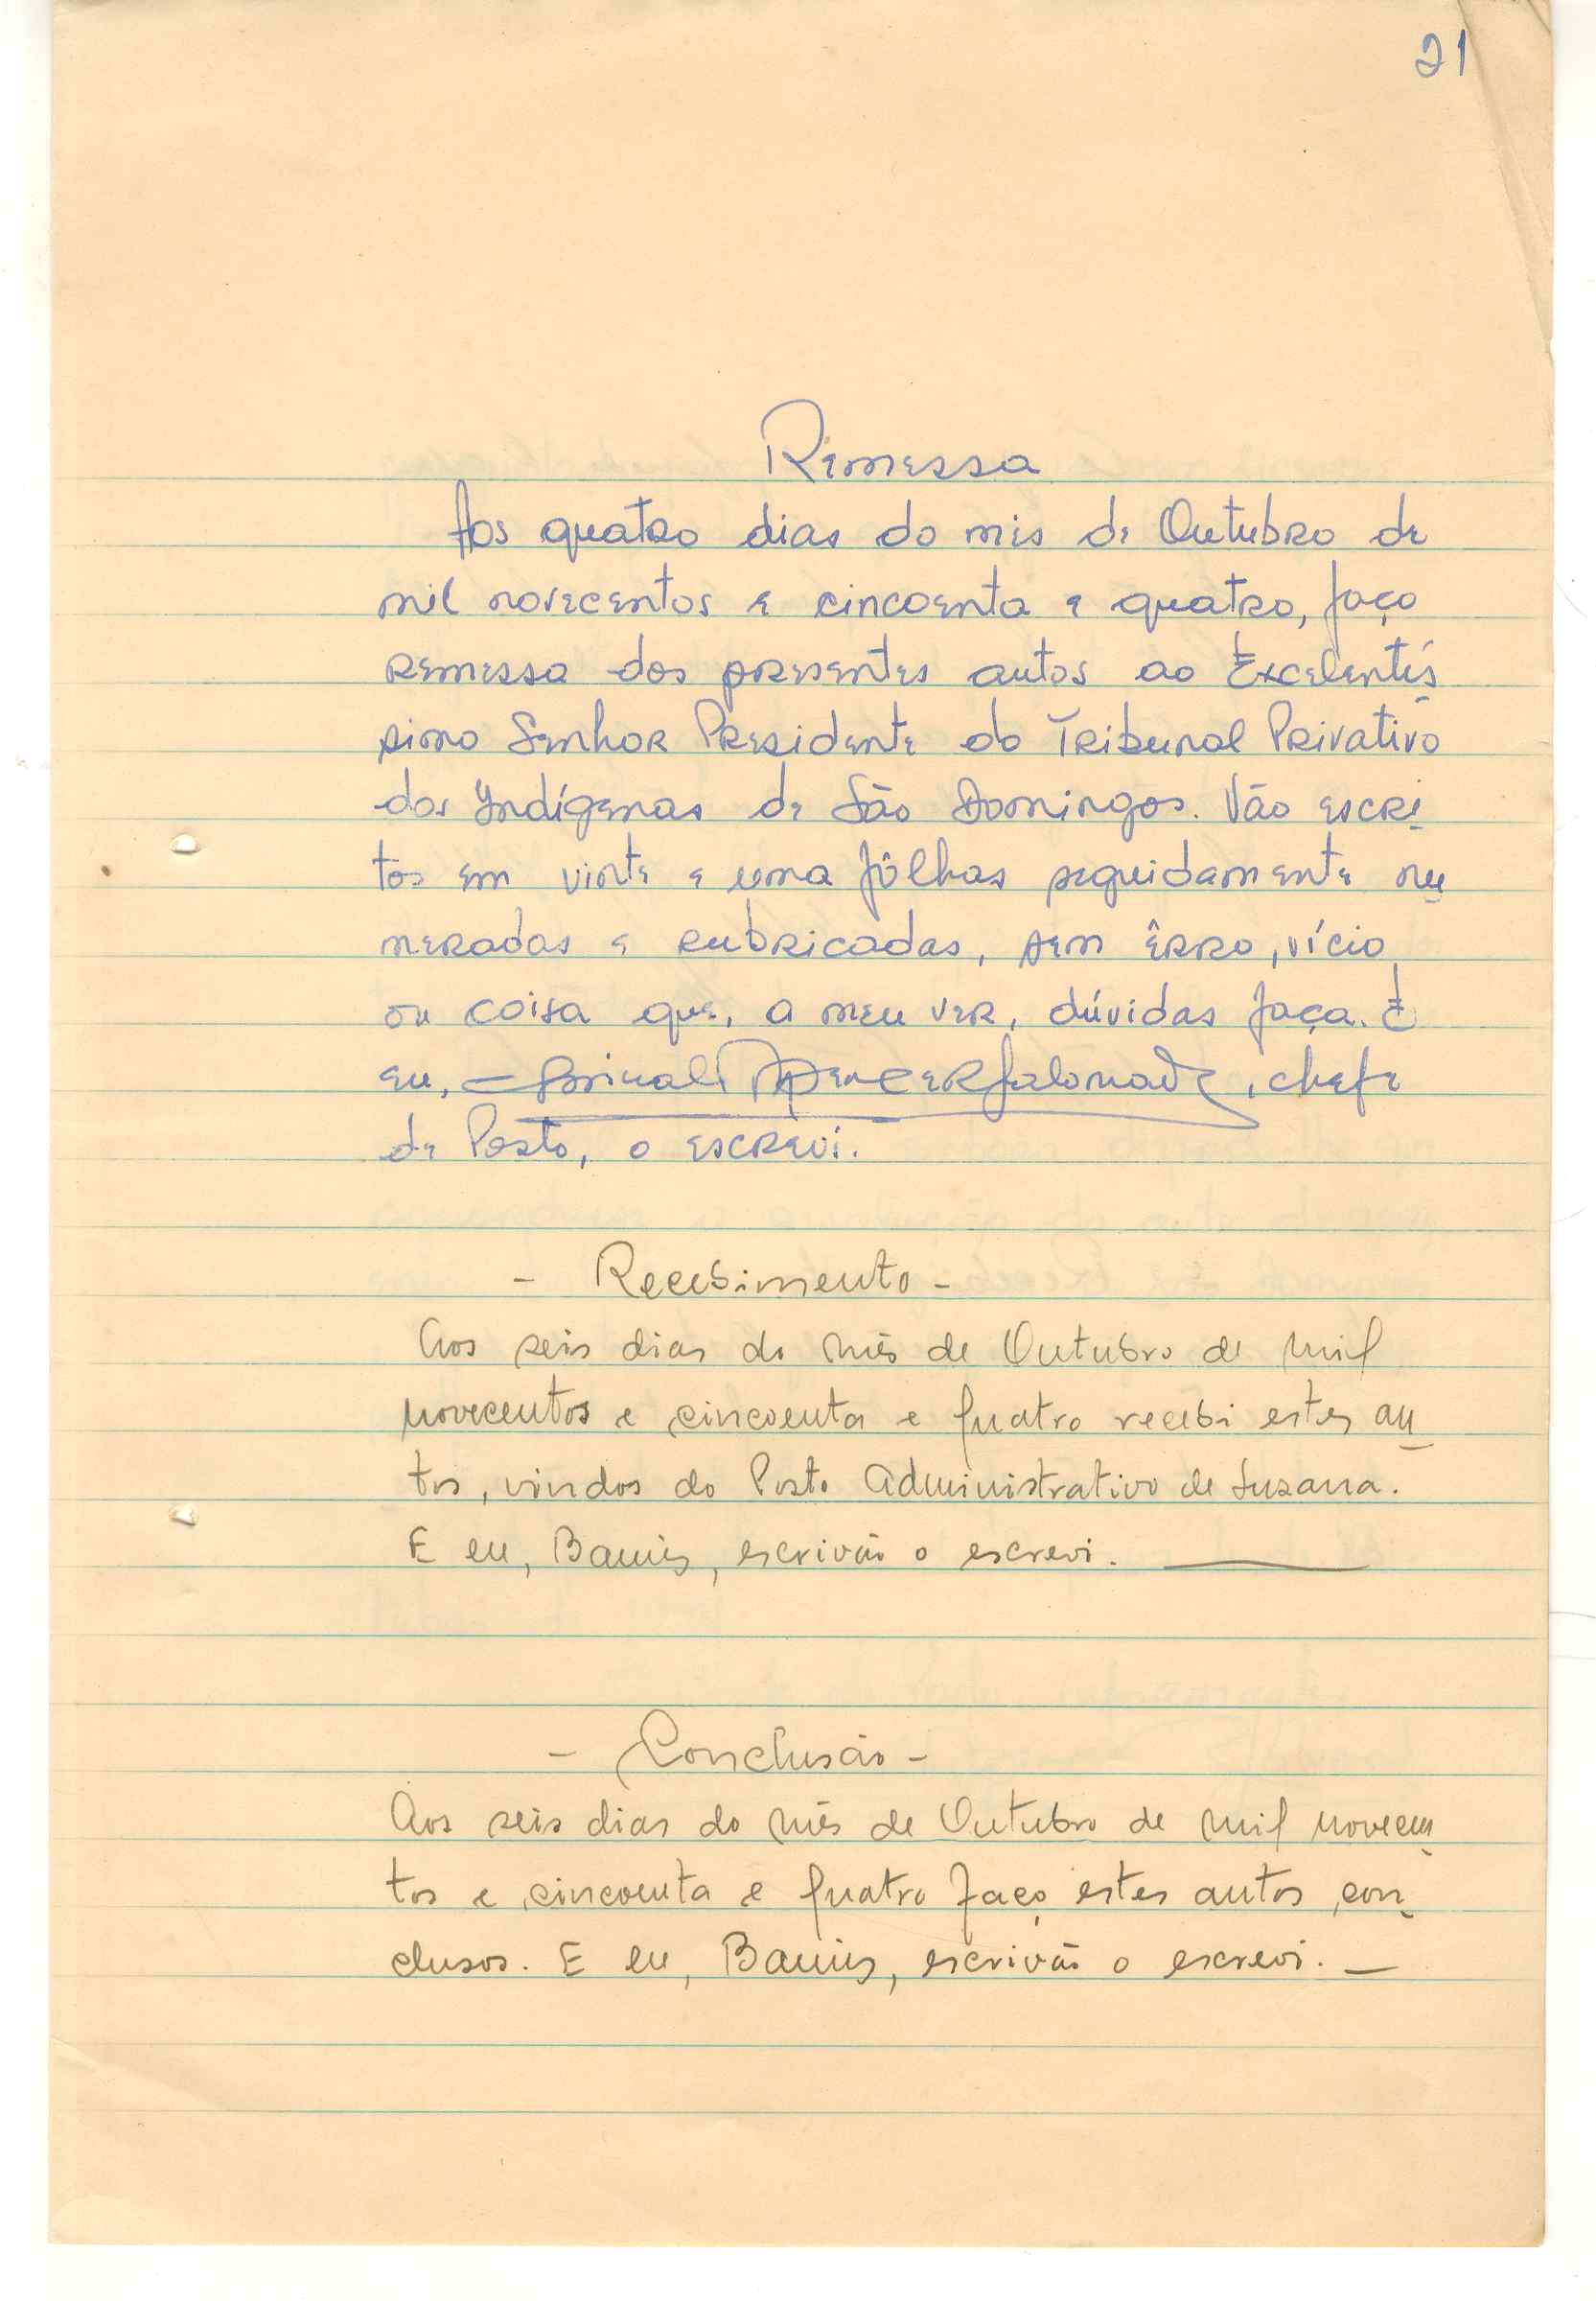 21
Remessa
Aos quatro dias do mês de Outubro de
mil novecentos e cincoenta e quatro, faço
remessa dos presentes autos ao Excelentís
simo Senhor Presidente do Tribunal Privativo
dos Indígenas de São Domingos. Vão escri
tos em vinte e uma fôlhas seguidamente nu
meradas e rubricadas, sem êrro, vício
ou coisa que, a meu ver, dúvidas faça. E
eu, , chefe
de Posto, o escrevi.
- Recebimento -
Aos seis dias do mês de Outubro de mil
novecentos e cincoenta e quatro recebi estes au
tos, vindos do Posto Administrativo de Suzana.
E eu, , escrivão o escrevi.
- Conclusão -
Aos seis dias do mês de Outubro de mil novecen
tos e cincoenta e quatro faço estes autos con
clusos. E eu, , escrivão o escrevi. —